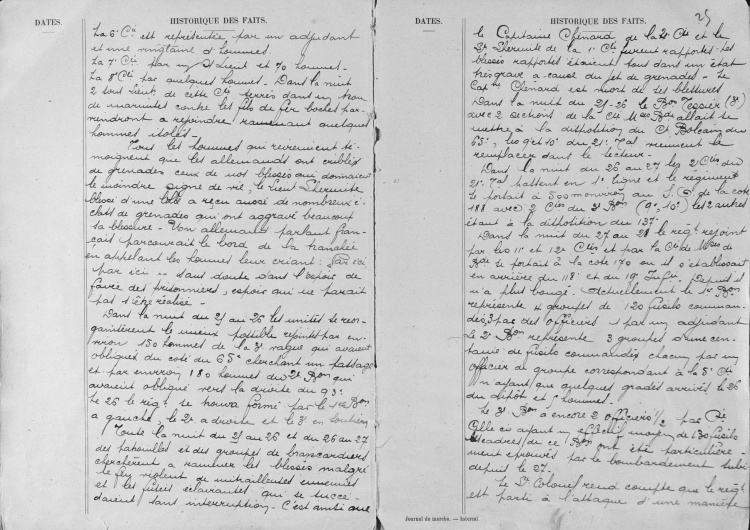 DATES.
HISTORIQUE DES FAITS.
La 6e Cie est représentée par un adjudant
et une vingtaine d'hommes.
La 7e Cie par un S/Lieut et 70 hommes.
La 8e Cie par quelques hommes. Dans la nuit
2 sous lieut. de cette Cie terrés dans un trou
de marmites contre les fils de fer boches par-
viendront a rejoindre ramenant quelques
hommes isolés.
Tous les hommes qui revinrent té-
moignent que les allemands ont criblés
de grenades ceux de nos blessés qui donnaient
le moindre signe de vie, le lieut Thermite
blessé d'une balle a reçu aussi de nombreux é-
clats de grenades qui ont aggravé beaucoup
sa blessure. Un allemand parlant fran-
çais parcourait le bord de la tranchée
en appelant les hommes leur criant: Par ici,
par ici -- sans doute dans l'espoir de
faire des prisonniers, espoir qui ne parait
pas s'être réalisé -
Dans la nuit du 25 au 26 les unités se reor-
ganisèrent le mieux possible rejoints par en-
viron 150 hommes de la 3e vague qui avaient
obliqués du coté du 65e cherchant un passage
et par environ 180 hommes du 2e Bon qui
avaient obliqué vers la droite du 93e
Le 26 le régt se trouva formé par le 1er Bon
a gauche, le 2e a droite et le 3e en soutien
Toute la nuit du 25 au 26 et du 26 au 27
des patrouilles et des groupes de brancardiers
cherchèrent a ramener les blessés malgré
le feu violent de mitrailleuses ennemies
et les fusées éclairantes qui se succé-
daient sans interruption - C'est ainsi que
DATES.
HISTORIQUE DES FAITS.
25
le Capitaine Chenard de la 2e Cie et le
Lt Thermite de la 1e Cie furent rapportés. Les
blessés rapportés étaient tous dans un état
très grave a cause du jet de grenades. Le
Capne Chenard est mort de ses blessures
Dans la nuit du 25-26 le Bon Tessier (3e)
avec 2 sections de la Cie Mses Bde allait se
mettre à la disposition du Ct
65e, les 9 et 10e du 21e Tal viennent le
remplacer dans le secteur.
Dans la nuit du 26 au 27 les 2 Cies du
21e Tal passent en 1e ligne et le régiment
se portait à 500m environ au S.O. de la cote
188 avec 2 Cies du 3e Bon (9e, 10e) les 2 autres
étant à la disposition du 137e
Dans la nuit du 27 au 28 le régt rejoint
par les 11e et 12e Cies et par la Cie de Mses de
Bde se portait à la cote 170 ou il s'établissait
en arrière du 118e et du 19e Infie. Depuis il
n'a plus bougé. Actuellement le 1er Bon
représente 4 groupes de 120 fusils comman-
dés, 3 par des officiers 1 par un adjudant
le 2e Bon représente 3 groupes d'une cen-
taine de fusils commandés chacun par un
officier de groupe correspondant à la 8e Cie
n'ayant que quelques gradés arrivés le 26
du dépôt et hommes.
Le 3e Bon a encore 2 officiers 1/2 par Cie
Elle ci ayant un effectif moyen de 130 fusils
les cadres de ce Bon ont été particulière-
ment éprouvés par le bombardement subi
depuis le 27.
Le Lt Colonel rend compte que le régt
est parti à l'attaque d'une manière
Journal de marche. — Interval